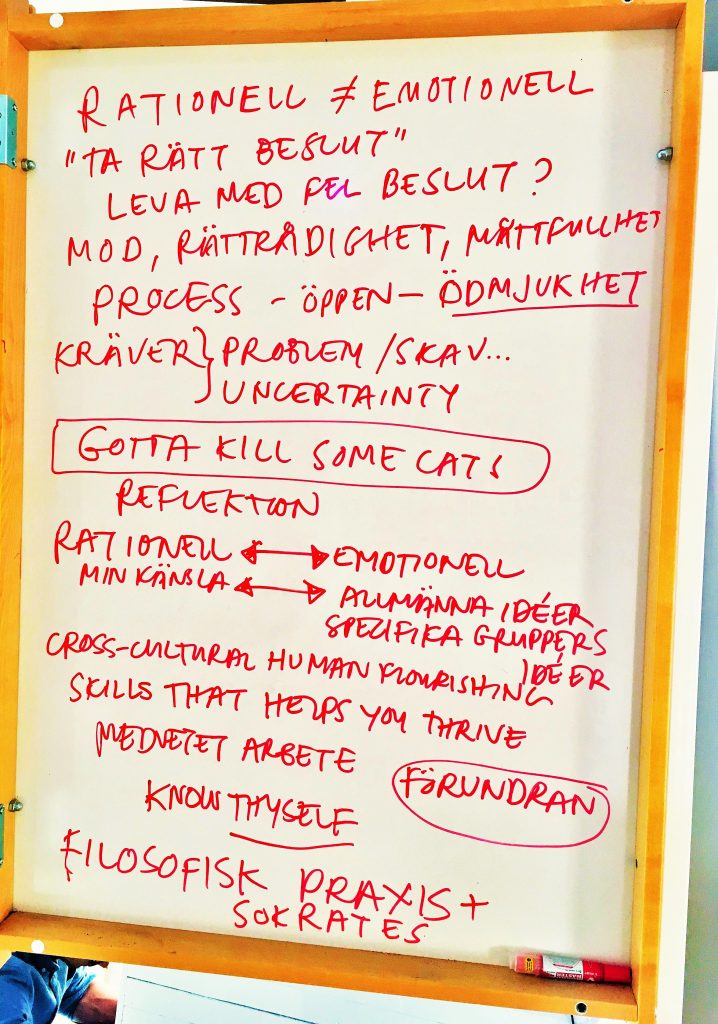 RATIONELL ≠ EMOTIONELL
"TA RÄTT BESLUT"
LEVA MED FEL BESLUT?
MOD, RÄTTRÅDIGHET, MÅTTFULLHET
PROCESS - ÖPPEN - ÖDMJUKHET
KRÄVER } PROBLEM / SKAV...
UNCERTAINTY
GOTTA KILL SOME CATS
REFLEKTION
RATIONELL ↔ EMOTIONELL
MIN KÄNSLA ↔ ALLMÄNNA IDÉER
SPECIFIKA GRUPPERS
IDÉER
CROSS-CULTURAL HUMAN FLOURISHING
SKILLS THAT HELPS YOU THRIVE
MEDVETET ARBETE
FÖRUNDRAN
KNOW THYSELF
FILOSOFISK PRAXIS +
SOKRATES